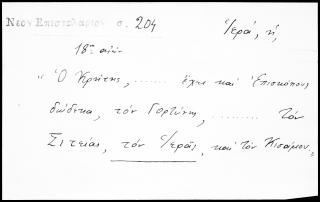 Νεον Επιστολαριον σ. 204
Ἱερά, ἡ,
18ος αἰών
"Ὁ Κρήτης, ........ ἔχει καὶ Ἐπισκόπους
δώδεκα, τὸν Γορτύνης, ........ τὸν
Σιτείας, τὸν Ἱερᾶς, καὶ τὸν Κισάμου,"